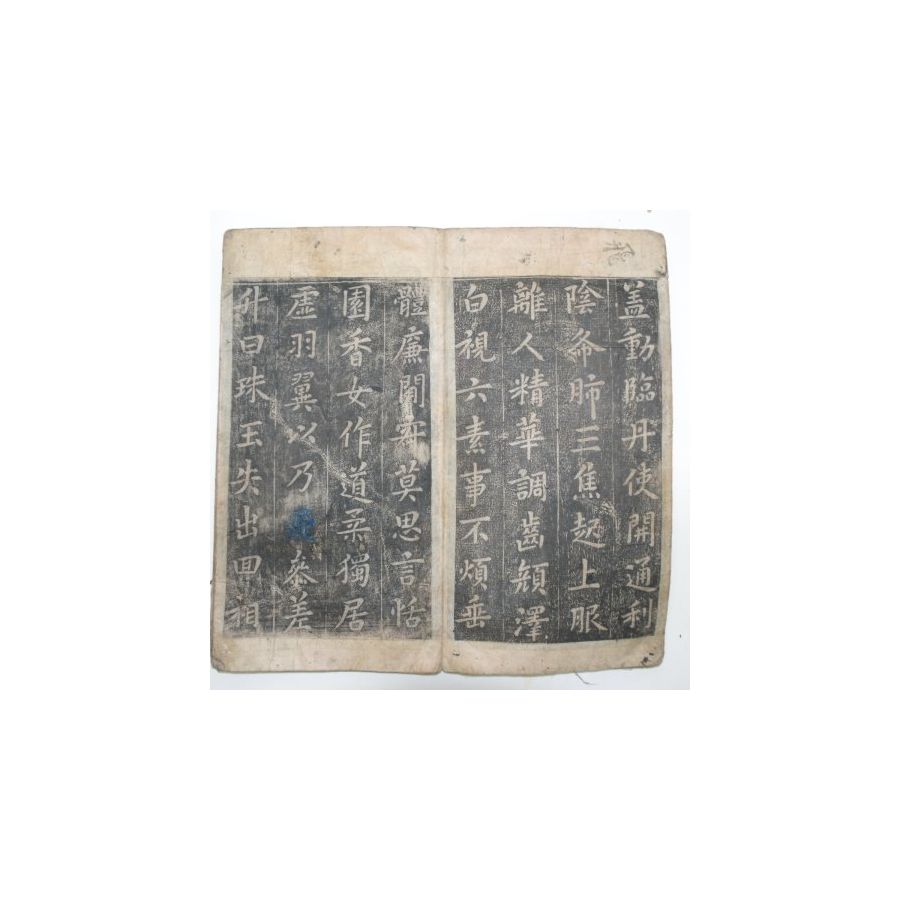 蓋動臨丹使開通利
陰夅肺三焦趍上服
離人精華調齒頰澤
白視六素事不煩垂
體廉閒安莫思言恬
園香女作道柔獨居
虛羽翼以乃參差
升曰珠玉失出回相